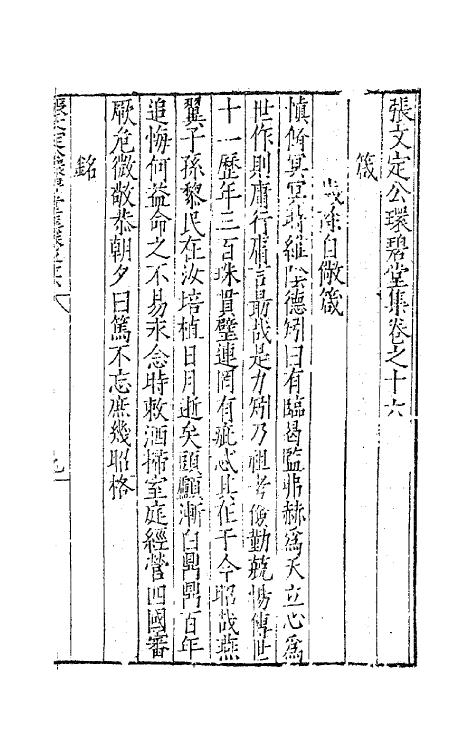 張文定公環碧堂集卷之十六
箴
歲除自儆箴
慎脩冥冥時維陰德矧曰有臨曷監弗赫爲天立心爲
世作則庸行庸言最哉是力矧乃祖考儉勤兢惕傳世
十一歷年三百珠貫璧連罔有疵忒其在于今昭哉燕
翼子孫黎民在汝培植日月逝矣頭顱漸白鼎鼎百年
追悔何益命之不易永念時敕洒掃室庭經營四國審
厥危微敬恭朝夕曰篤不忘庶幾昭格
銘